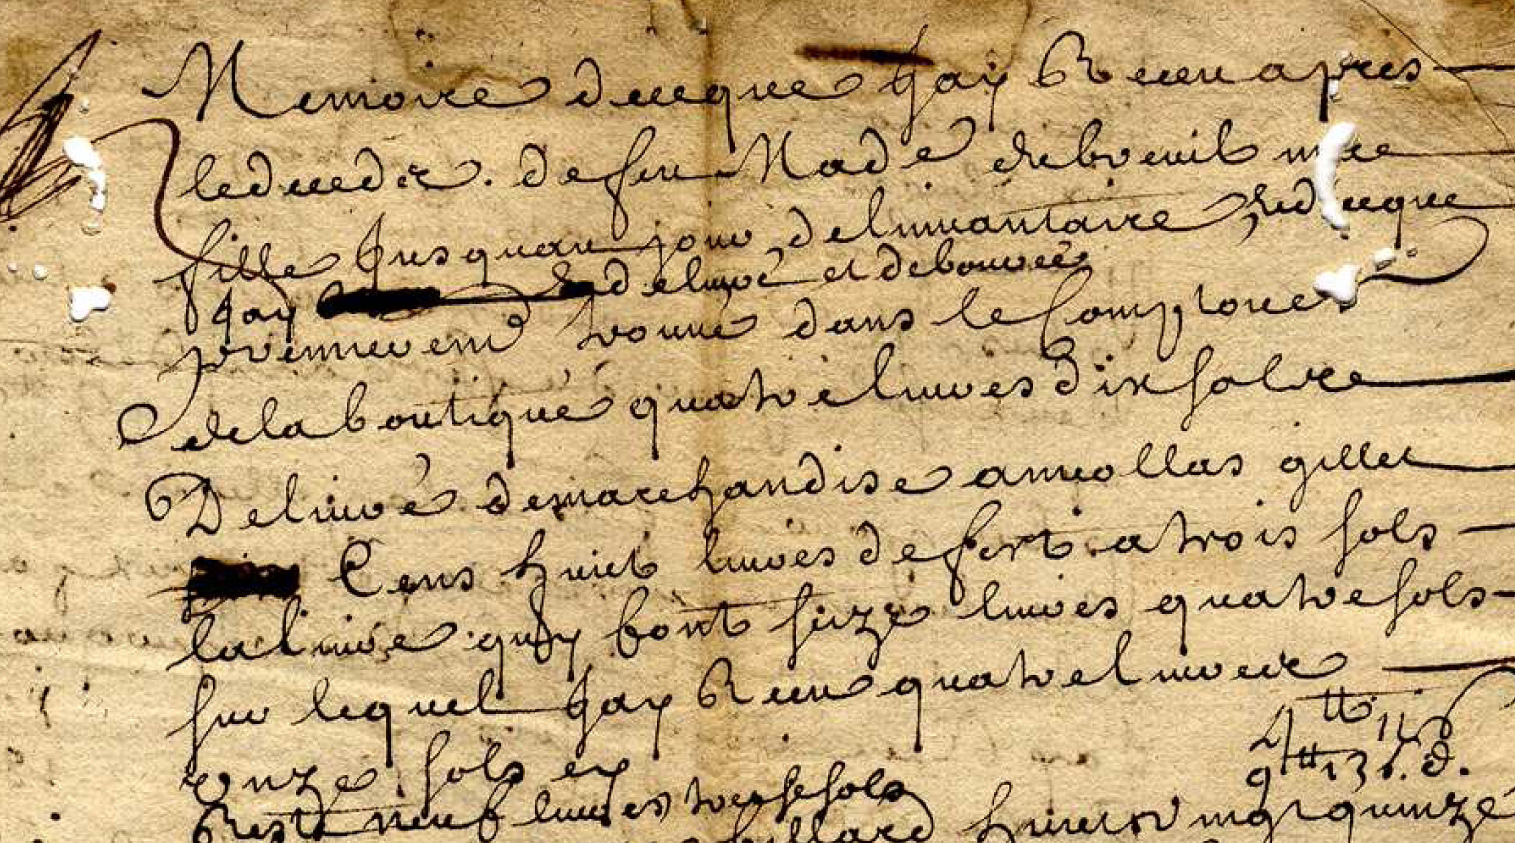 Memoire de ce que Jay Receu apres
le deced de feu Made debreuil ma
fille Jusquau jour de linuantaire & de ce que
Jay deliuré et debourcé
premierement trouué dans le Comptoire
de la boutique quatre liures dix sols
Deliuré de marchandise a nicollas gillet
Cens huict liures de fert a trois sols
la liure quy font seize liures quatre sols
sur lequel Jay Receu quatre liures
onze sols cy 4tt 11s
Reste neuf liures treize sols 9tt 13s. d.
huict vingt quinze